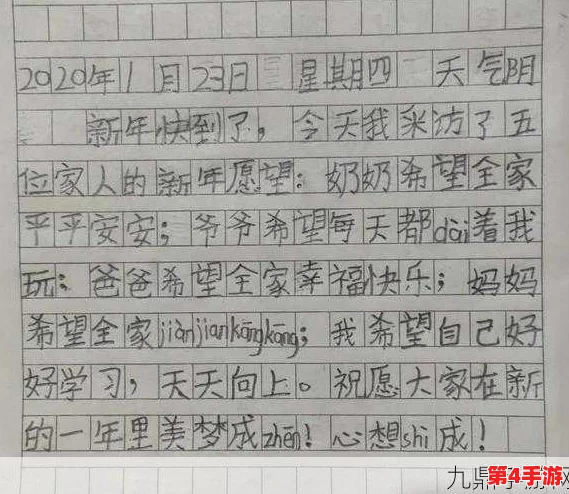 2020年1月23日 星期四 天气阴
新年快到了，今天我采访了五
位家人的新年愿望：奶奶希望全家
平平安安；爷爷希望每天都dài着我
玩；爸爸希望全家幸福快乐；妈妈
希望全家jiànjiankāngkāng；我希望自己好
好学习，天天向上。祝愿大家在新
的一年里美梦成zhēn！心想shì成！
第4手游